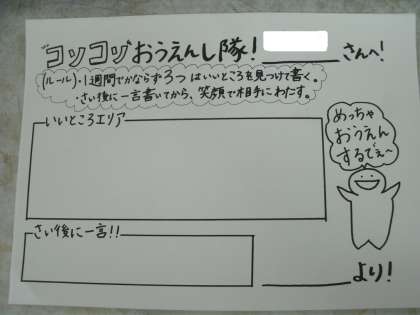 コツコツおうえんし隊!
さんへ!
(ルール)・1週間でかならず3つはいいところを見つけて書く。
・さい後に一言書いてから、笑顔で相手にわたす。
いいところエリア
めっちゃ
おうえん
するでぇ〜
さい後に一言!!
より!